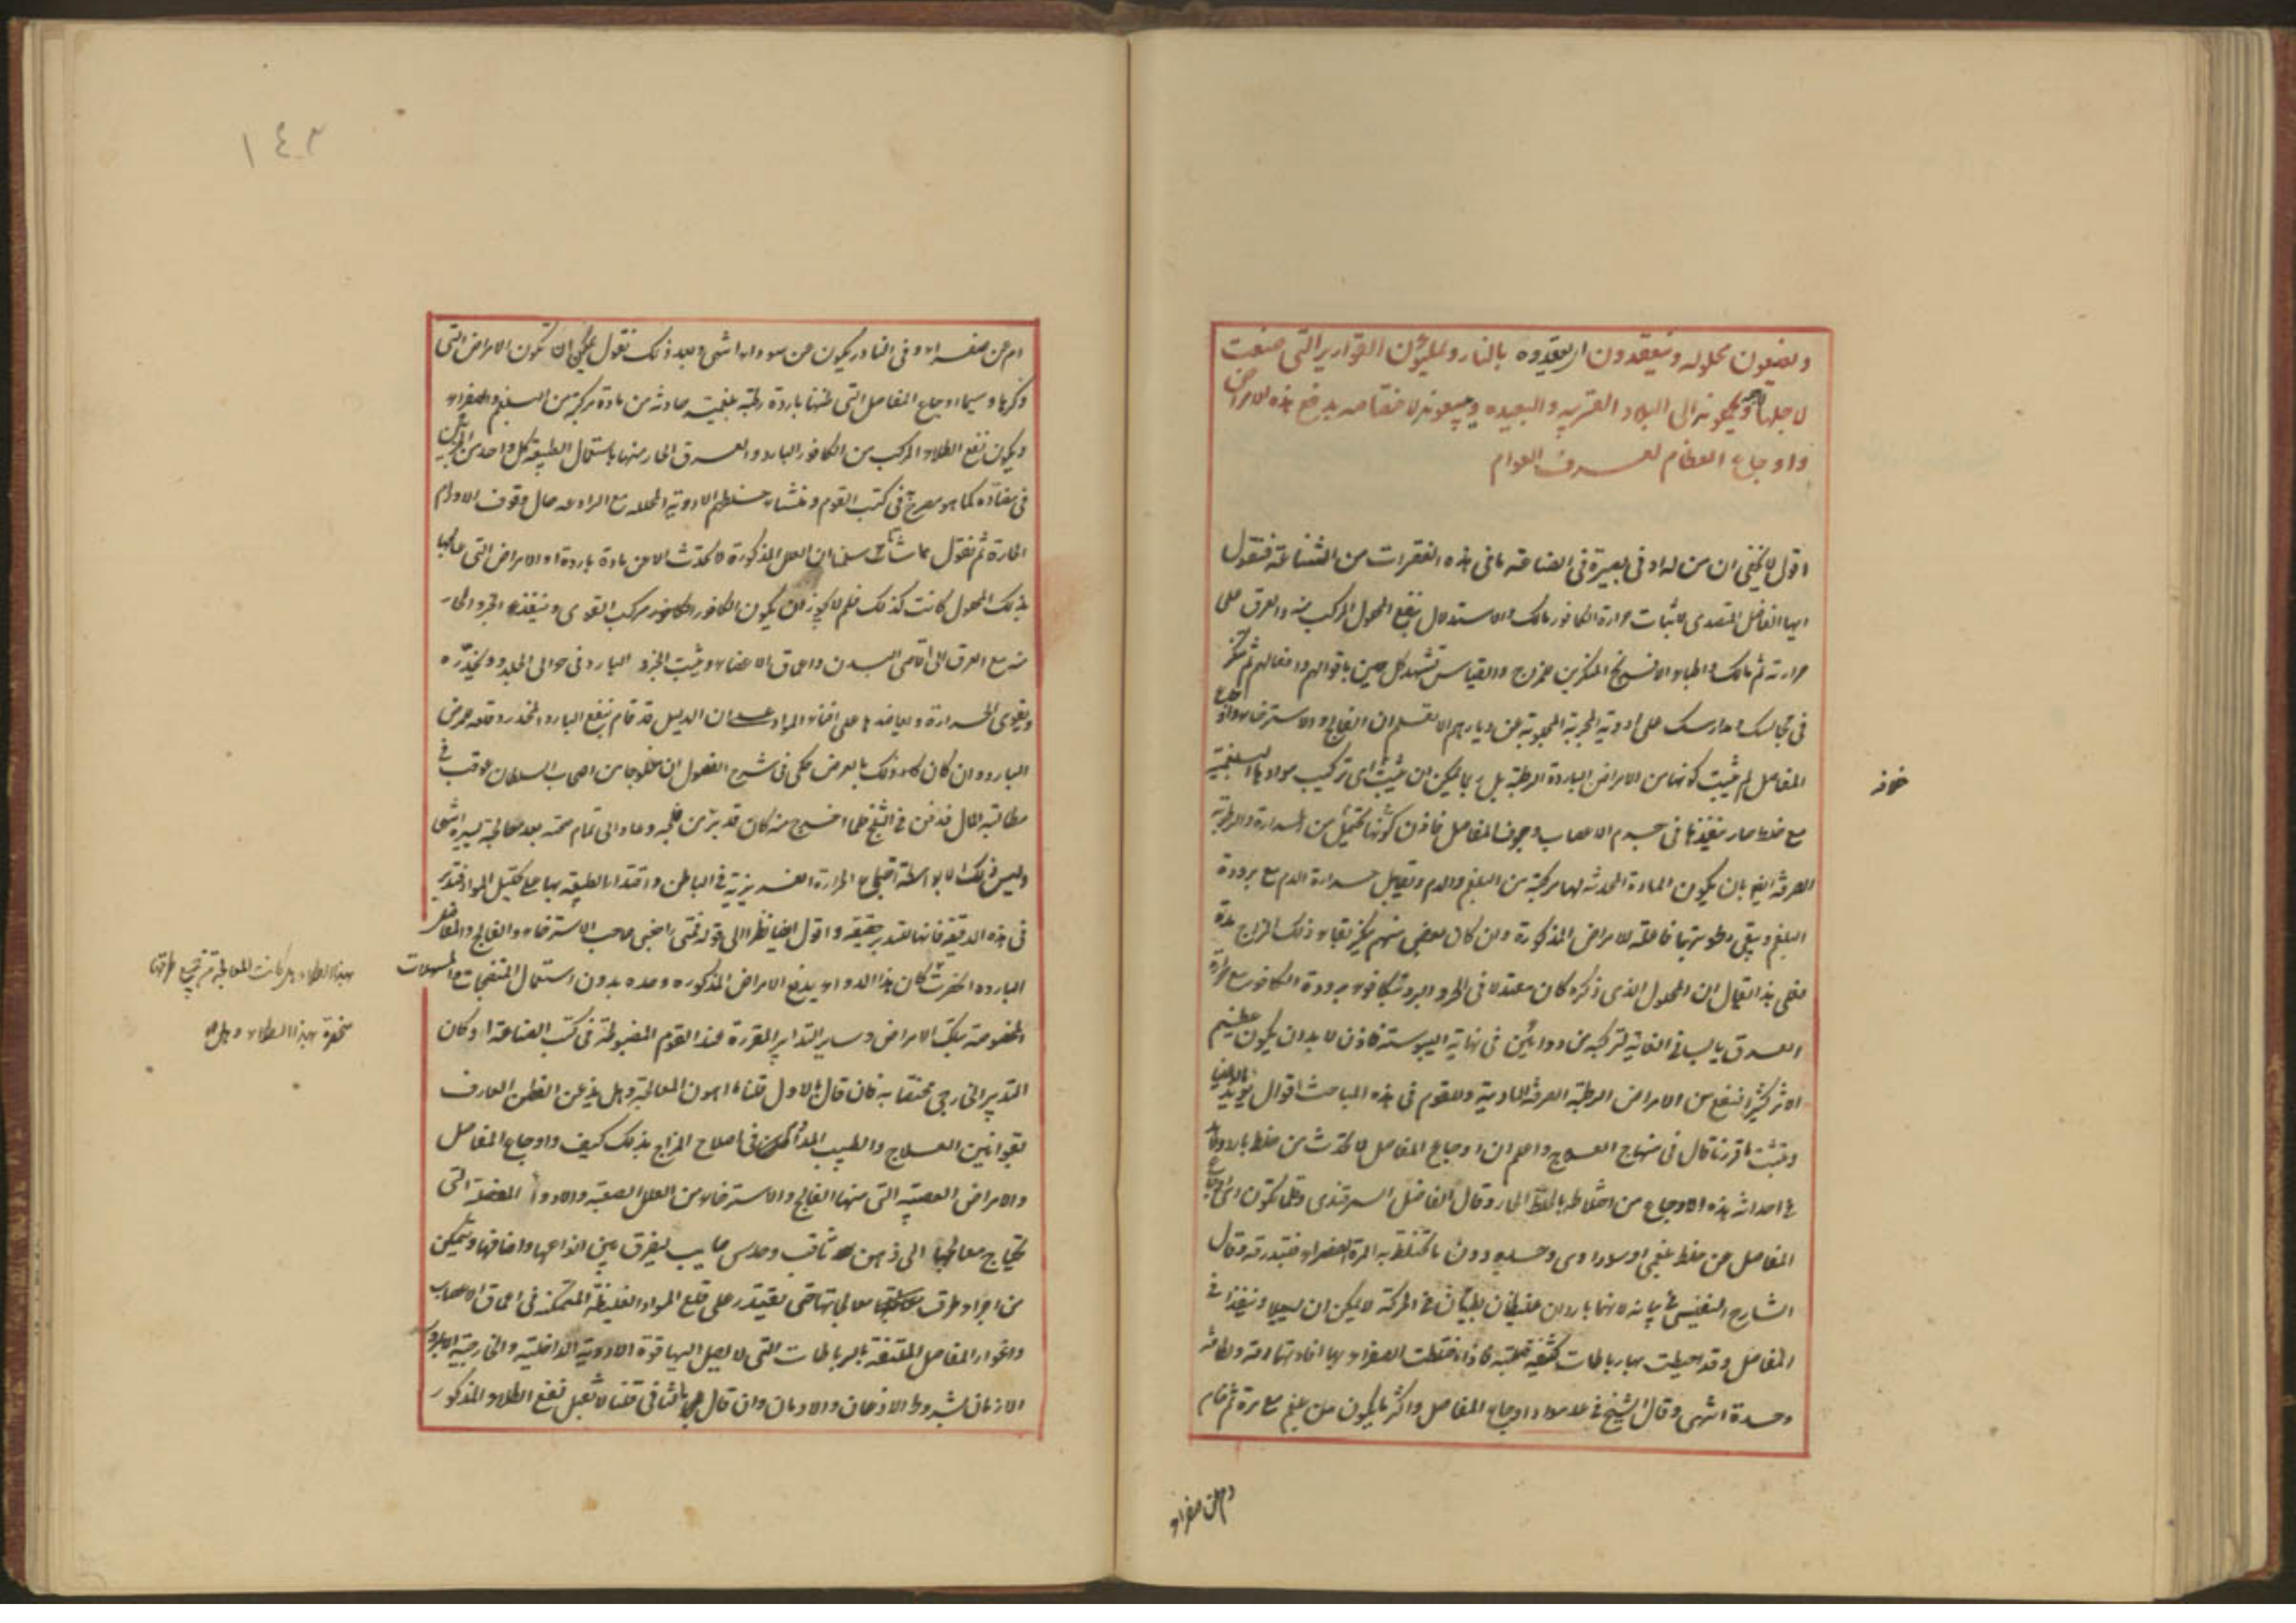 ويضيعون محلوله وينعقدون ان يعقدوه بالنار ويملؤن القوارير التى صنعت
لاجلها ويحكونه الى البلاد القريبه والبعيده ويبيعونه لاختصاصه بدفع هذه الامراض
واوجاع العظام لعرف العوام
اقول لا يخفى ان من له ادنى بصيرة فى الصناعة ما فى هذه الفقرات من الشناعة فنقول
ايها الفاضل المتصدى لاثبات حرارة الكافور مالك والاستدلال بنفع المحلول المركب منه والعرق على
حرارته ثم مالك واطباء الافرنج المنكرين للمزاج والقياس تشهد كل حين باقوالهم وافعالهم ثم تنكر
فى مجالسك ومدارسك على ادوية المجربة المجلوبة عن ديارهم الا تعلم ان الفالج والاسترخاء واوجاع
المفاصل لم يثبت كونها من الامراض الباردة الرطبة بل ربما يمكن ان يثبت اى تركيب موادها البلغمية
مع خلط حار ينفذها فى جرم الاعصاب وجوف المفاصل فاذن كونها تحتمل من الحرارة والرطوبة
الصرفة ايضا بان يكون المادة المحدثة لها مركبة من البلغم والدم وتقابل حرارة الدم مع برودة
البلغم ويبقى رطوبتها فاعلة للامراض المذكورة وان كان بعض منهم ينكر بقاء ذلك المزاج مدة
فعلى هذا يقال ان المحلول الذى ذكره كان معتدلا فى الحر والبرد لتكافوء برودة الكافور مع حرارة
العرق يابسا فى الغاية لتركبه من دوائين فى نهاية اليبوسة فاذن لا بد ان يكون عظيم
الاثر كثير النفع من الامراض الرطبة الصرفة المادية وللقوم فى هذه المباحث اقوال يؤيد ما قلنا
ويثبت ما قررنا قال فى منهاج العلاج واعلم ان اوجاع المفاصل لا تحدث من خلط بارد ولا بد
فى احداث هذه الاوجاع من اختلاطه بالخلط الحار وقال الفاضل السمرقندى وقلما تكون اوجاع
المفاصل عن خلط بلغمى او سوداوى وحده دون ما تختلط به المرة الصفراء فتبدرقه وقال
الشارح النفيسى فى بيانه لانهما باردان غليظان بطيئان فى الحركة لا يمكن ان يسيلا وينفذا فى
المفاصل وقد احيطت بها رباطات كثيفة صلبة فاذا اختلطت الصفراء بها افادتها رقة ولطافة
وحدة انتهى وقال الشيخ فى عد مواد اوجاع المفاصل واكثر ما يكون عن بلغم مع مرة ثم خام
خلافه
دم عن صفراء
١٤٢
ام عن صفراء وفى النادر يكون عن سوداء انتهى وبعد ذلك نقول يمكن ان تكون الامراض التى
ذكرها وسيما اوجاع المفاصل التى ظنها باردة رطبة بلغمية حادثة من مادة مركبة من البلغم والصفراء
ويكون نفع الطلاء المركب من الكافور البارد والعرق الحار منها باستعمال الطبيعة كل واحد من الجزئين
فى مضاده كما هو مصرح فى كتب القوم ومنشاء خلطهم الادوية المحللة مع الرادعة حال وقوف الاورام
الحارة ثم نقول مماشاتا سلمنا ان العلل المذكورة لا تحدث الا عن مادة باردة او الامراض التى عالجها
بذلك المحلول كانت كذلك فلم لا يجوز ان يكون الكافور مركب القوى وينفذ الجزء الحار
منه مع العرق الى اقاصى البدن واعماق الاعضاء ويثبت الجزء البارد فى حوالى الجلد ويخدره
ويقوى الحرارة ويعاضدها على افناء المواد ان الدليل قد قام بنفع البارد المخدر وقلعه مرض
البارد وان كان كل ذلك بالعرض حكى فى شرح الفصول ان مفلوجا من اصحاب السلطان عوقب فى
مطالبة المال فدفن فى الثلج فلما اخرج منه كان قد برئ من فلجه وعاد الى تمام صحته بعد معالجة يسيرة انتهى
وليس ذلك الا بواسطة اجتماع الحرارة الغريزية فى الباطن واقتدار الطبيعة بها على تحليل المواد فتدبر
فى هذه الدقيقة فانها للتدبر حقيقة واقول ايضا ناظرا الى قوله فمتى راجعنى صاحب الاسترخاء والفالج والمفاصل
البارده اكان هذا الدواء يدفع الامراض المذكوره وحده بدون استعمال المنضجات والمسهلات
المخصوصة بتلك الامراض وساير التدابير المقررة عند القوم المضبوطة فى كتب الصناعة او كان
التدبير الخارجى مختصا به فان قال الاول قلنا ما اهون المعالجة وهل يذعن الفطن العارف
بقوانين العلاج والطبيب فى اصلاح المزاج بذلك كيف واوجاع المفاصل
والامراض العصبية التى منها الفالج والاسترخاء من العلل الصعبة والادواء المعضلة التى
تحتاج معالجها الى ذهن ثاقب وحدس صايب ليفرق بين انواعها واصنافها ويتمكن
من اجراء طرق معالجاتها حتى يقتدر على قلع المواد الغليظة المتمكنة فى اعماق الاعصاب
واغوار المفاصل الملتفة بالرباطات التى لا يصل اليها قوة الادوية الداخلية والخارجية الا بطول
الازمان بشروط الاذعان والادمان وان قال بالثانى قلنا لا نقبل نفع الطلاء المذكور
بهذا الطلاء هل كانت المعالجة من جميع طرقها
منحصرة بهذا الطلاء وهل